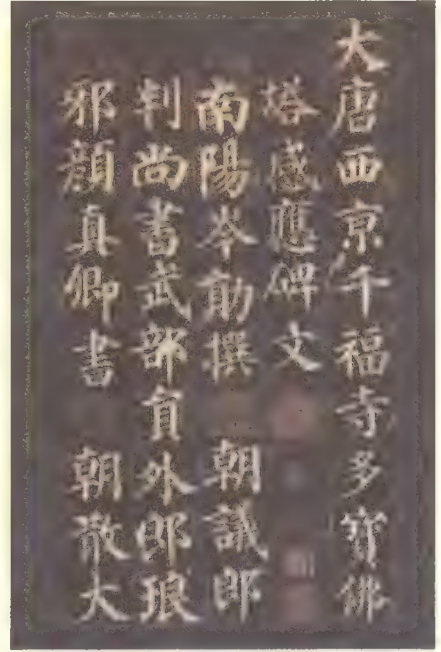 大唐西京千福寺多寳佛
塔感應碑文
南陽岑勛撰 朝議郎
判尚書武部員外郎琅
邪顏真卿書 朝散大